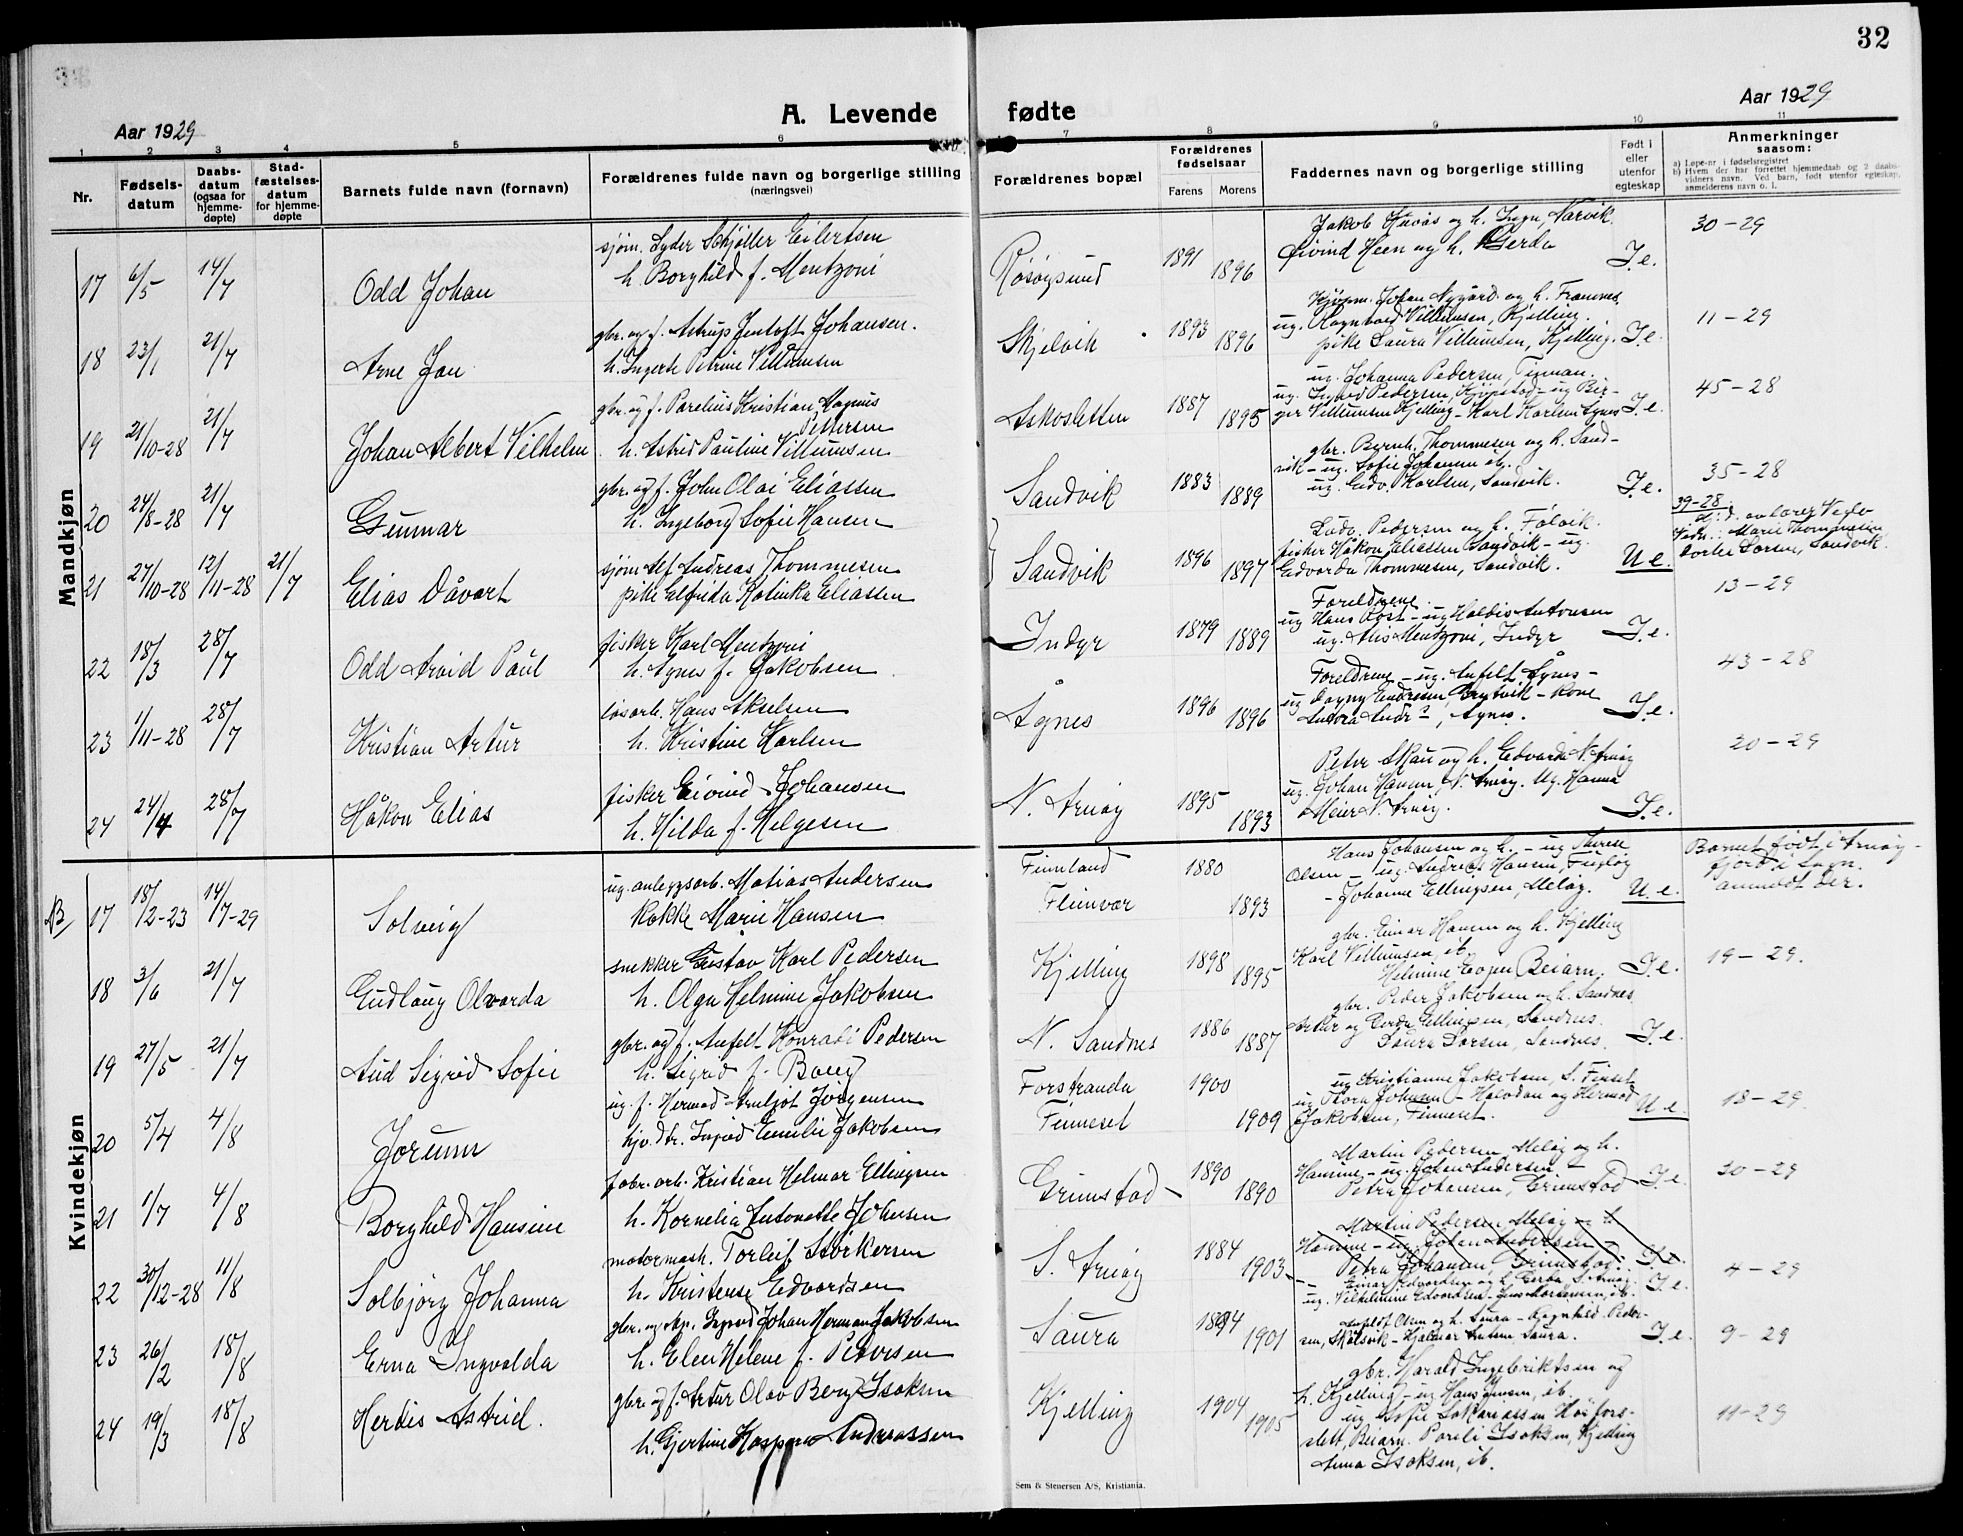 32
A. Levende fødte
Aar 1929
Aar 1929
1 2 3 4 5 6 7 8 9 10 11
Nr.
Fødselsdatum
Daabsdatum (ogsaa for hjemmedøpte)
Stadfæstelsesdatum for hjemmedøpte
Barnets fulde navn (fornavn)
Forældrenes fulde navn og borgerlige stilling
(næringsvei)
Forældrenes bopæl
Forældrenes fødselsaar
Farens Morens
Faddernes navn og borgerlige stilling
Født i eller utenfor egteskap
Anmerkninger
saasom:
a) Løpe-nr i fødselsregistret
b) Hvem der har forrettet hjemmedaab og 2 daabsvidners navn. Ved barn, født utenfor egteskap, anmelderens navn o. l.
Mandkjøn
17 6/5 14/7 Odd Johan
sjøm. Lyder Schjøller Eilertsen
h. Borghild f. Mentzoni
Røsøysund 1891 1896
Jakob Husås og h. Inga, Narvik.
Øivind Heen og h. Gerda
I.e. 30-29
18 23/1 21/7 Arne Jan
gbr. og f. Astrup Jentoft Johansen.
h. Ingerk Petrine Villumsen
Skjelvik 1893 1896
Kjøpm. Johan Nygård og h. Framnes
ug. Ragnvald Villumsen, Kjelling.
pike Laura Villumsen, Kjelling. I.e. 11-29
19 21/10-28 21/7 Johan Albert Vilhelm
gbr. og f. Parelius Kristian Magnus
Pettersen
h. Astrid Pauline Villumsen
Askosletten 1887 1895
ug. Johanna Pedersen,
ger Villumsen Kjelling - Karl Karlsen
I.e. 45-28
20 24/8-28 21/7 Gunnar
gbr. og f. John Olai Eliassen
h. Ingeborg Sofie Hansen
Sandvik 1883 1889
gbr. Bernh. Thommesen og h. Sand-
vik - ug. Sofie Johansen ib.
ug. Edv. Karlsen, Sandvik.
I.e. 35-28
21 27/10-28 12/11-28 21/7 Elias Dåvart
sjøm. Alf Andreas Thommesen
pike Elfrida Katinka Eliassen
Sandvik 1896 1897
Ludv. Pedersen og h. Følvik.
fisker Håkon Eliassen Sandvik - ug.
Edvarda Thommesen, Sandvik.
U e.
39-28
Vidn.: Marie Thommesen
Dorte Larsen, Sandvik.
22 18/3 28/7 Odd Arvid Paul
fisker Karl Mentzoni
h. Agnes f. Jakobsen
Indyr 1879 1889
Foreldrene
ug Hans Røst - ug Haldis Antonsen
ug. Alis Mentzoni, Indyr
I.e. 13-29
23 1/11-28 28/7 Kristian Artur
løsarb. Hans Akselsen
h. Kristine Karlsen
Ågnes 1896 1896
Foreldrene - ug. Anfelt Ågnes -
ug Dagny Endresen, - Kone
, Agnes.
I.e. 43-28
24 24/4 28/7 Håkon Elias
fisker Eivind Johansen
h. Hilda f. Helgesen
N. Arnøy 1895 1893
Peter Skau og h. Edvarda N. Arnøy
ug. Johan Hansen, N. Arnøy. Ug. Hanna
Meier N. Arnøy.
I.e. 20-29
Kvindekjøn
NB 17 18/2-23 14/7-29 Solveig
ug. anleggsarb. Matias Andersen
kokke Marie Hansen
Finnland
Fleinvær
1880 1893
Hans Johansen og h. - ug Therese
Olsen - ug. Andreas Hansen, Fugløy
- Johanne Ellingsen, Meløy.
U e.
Barnet født i Arnøy-
fjord i Sogn.
anmeldt der.
18 3/6 21/7 Gudlaug Olvarda
snekker Gustav Karl Pedersen
h. Olga Helmine Jakobsen
Kjelling 1898 1895
gbr. Einar Hansen og h. Kjelling
Karl Villumsen, ib.
Helmine Beiarn. I.e. 19-29.
19 27/5 21/7 Aud Sigrid Sofie
gbr. og f. Anfelt Konradi Pedersen
h. Sigrid f. Berg
N. Sandnes 1886 1887
gbr. Peder Jakobsen og h. Sandnes
Artur og Gerda Ellingsen, Sandnes.
Laura Larsen, Sandnes. I.e.
20 5/4 4/8 Jorunn
ug. f. Hermod Arnljot Jørgensen
hjv. dtr. Ingrid Emilie Jakobsen
Forstranda
Finneset
1900 1909
ug Kristianne Jakobsen, S. Finset
ug Thora Johnsen - Halvdan og Hermod
Jakobsen, Finneset. U e. 18-29.
21 1/7 4/8 Borghild Hansine
fabr. arb. Kristian Helmar Ellingsen
h. Kornelia Antonette Johansen
Grimstad 1890 1890
Martin Pedersen Meløy og h.
Hansine - ug. Johan Andersen -
Petra Johansen, Grimstad I.e. 30-29
22 30/12-28 11/8 Solbjørg Johanna
motormask. Torleif Størkersen
h. Kristense Edvardsen
S. Arnøy 1884 1903
Martin Pedersen Meløy og h.
Hansine - ug. Johan Andersen -
Petra Johansen, Grimstad. I.e.
Einar Edvardsen og h. Gerda, S. Arnøy.
ug. Vilhelmine Edvardsen - Jens Mortensen, ib. I.e. 4-29
23 26/2 18/8 Erna Ingvalda
gbr. og Ingvald Johan Herman Jakobsen
h. Elen Helene f. Petersen
Saura 1894 1901
Anfeldt Olsen og h. Saura - Ragnhild Peder-
sen, Skålsvik - Hjalmar Antsen Saura. I.e. 9-29
24 19/3 18/8 Herdis Astrid.
gbr. og f. Artur Olav Berg Isaksen
h. Gjertine Kaspara Andreassen
Kjelling 1904 1905
gbr. Harald Ingebriktsen og
h. Kjelling - ug Hans Jensen, ib.
ug Sofie Sakariassen
slett, Beiarn. Pareli Isaksen, Kjelling
Anna Isaksen, ib.
11-29
Sem & Stenersen A/S, Kristiania.